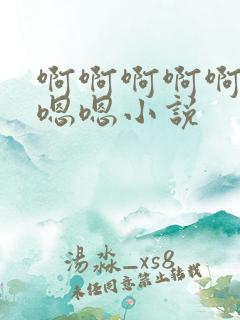 啊啊啊啊啊
嗯嗯小说
湯淼_xs8
未经同意禁止转载